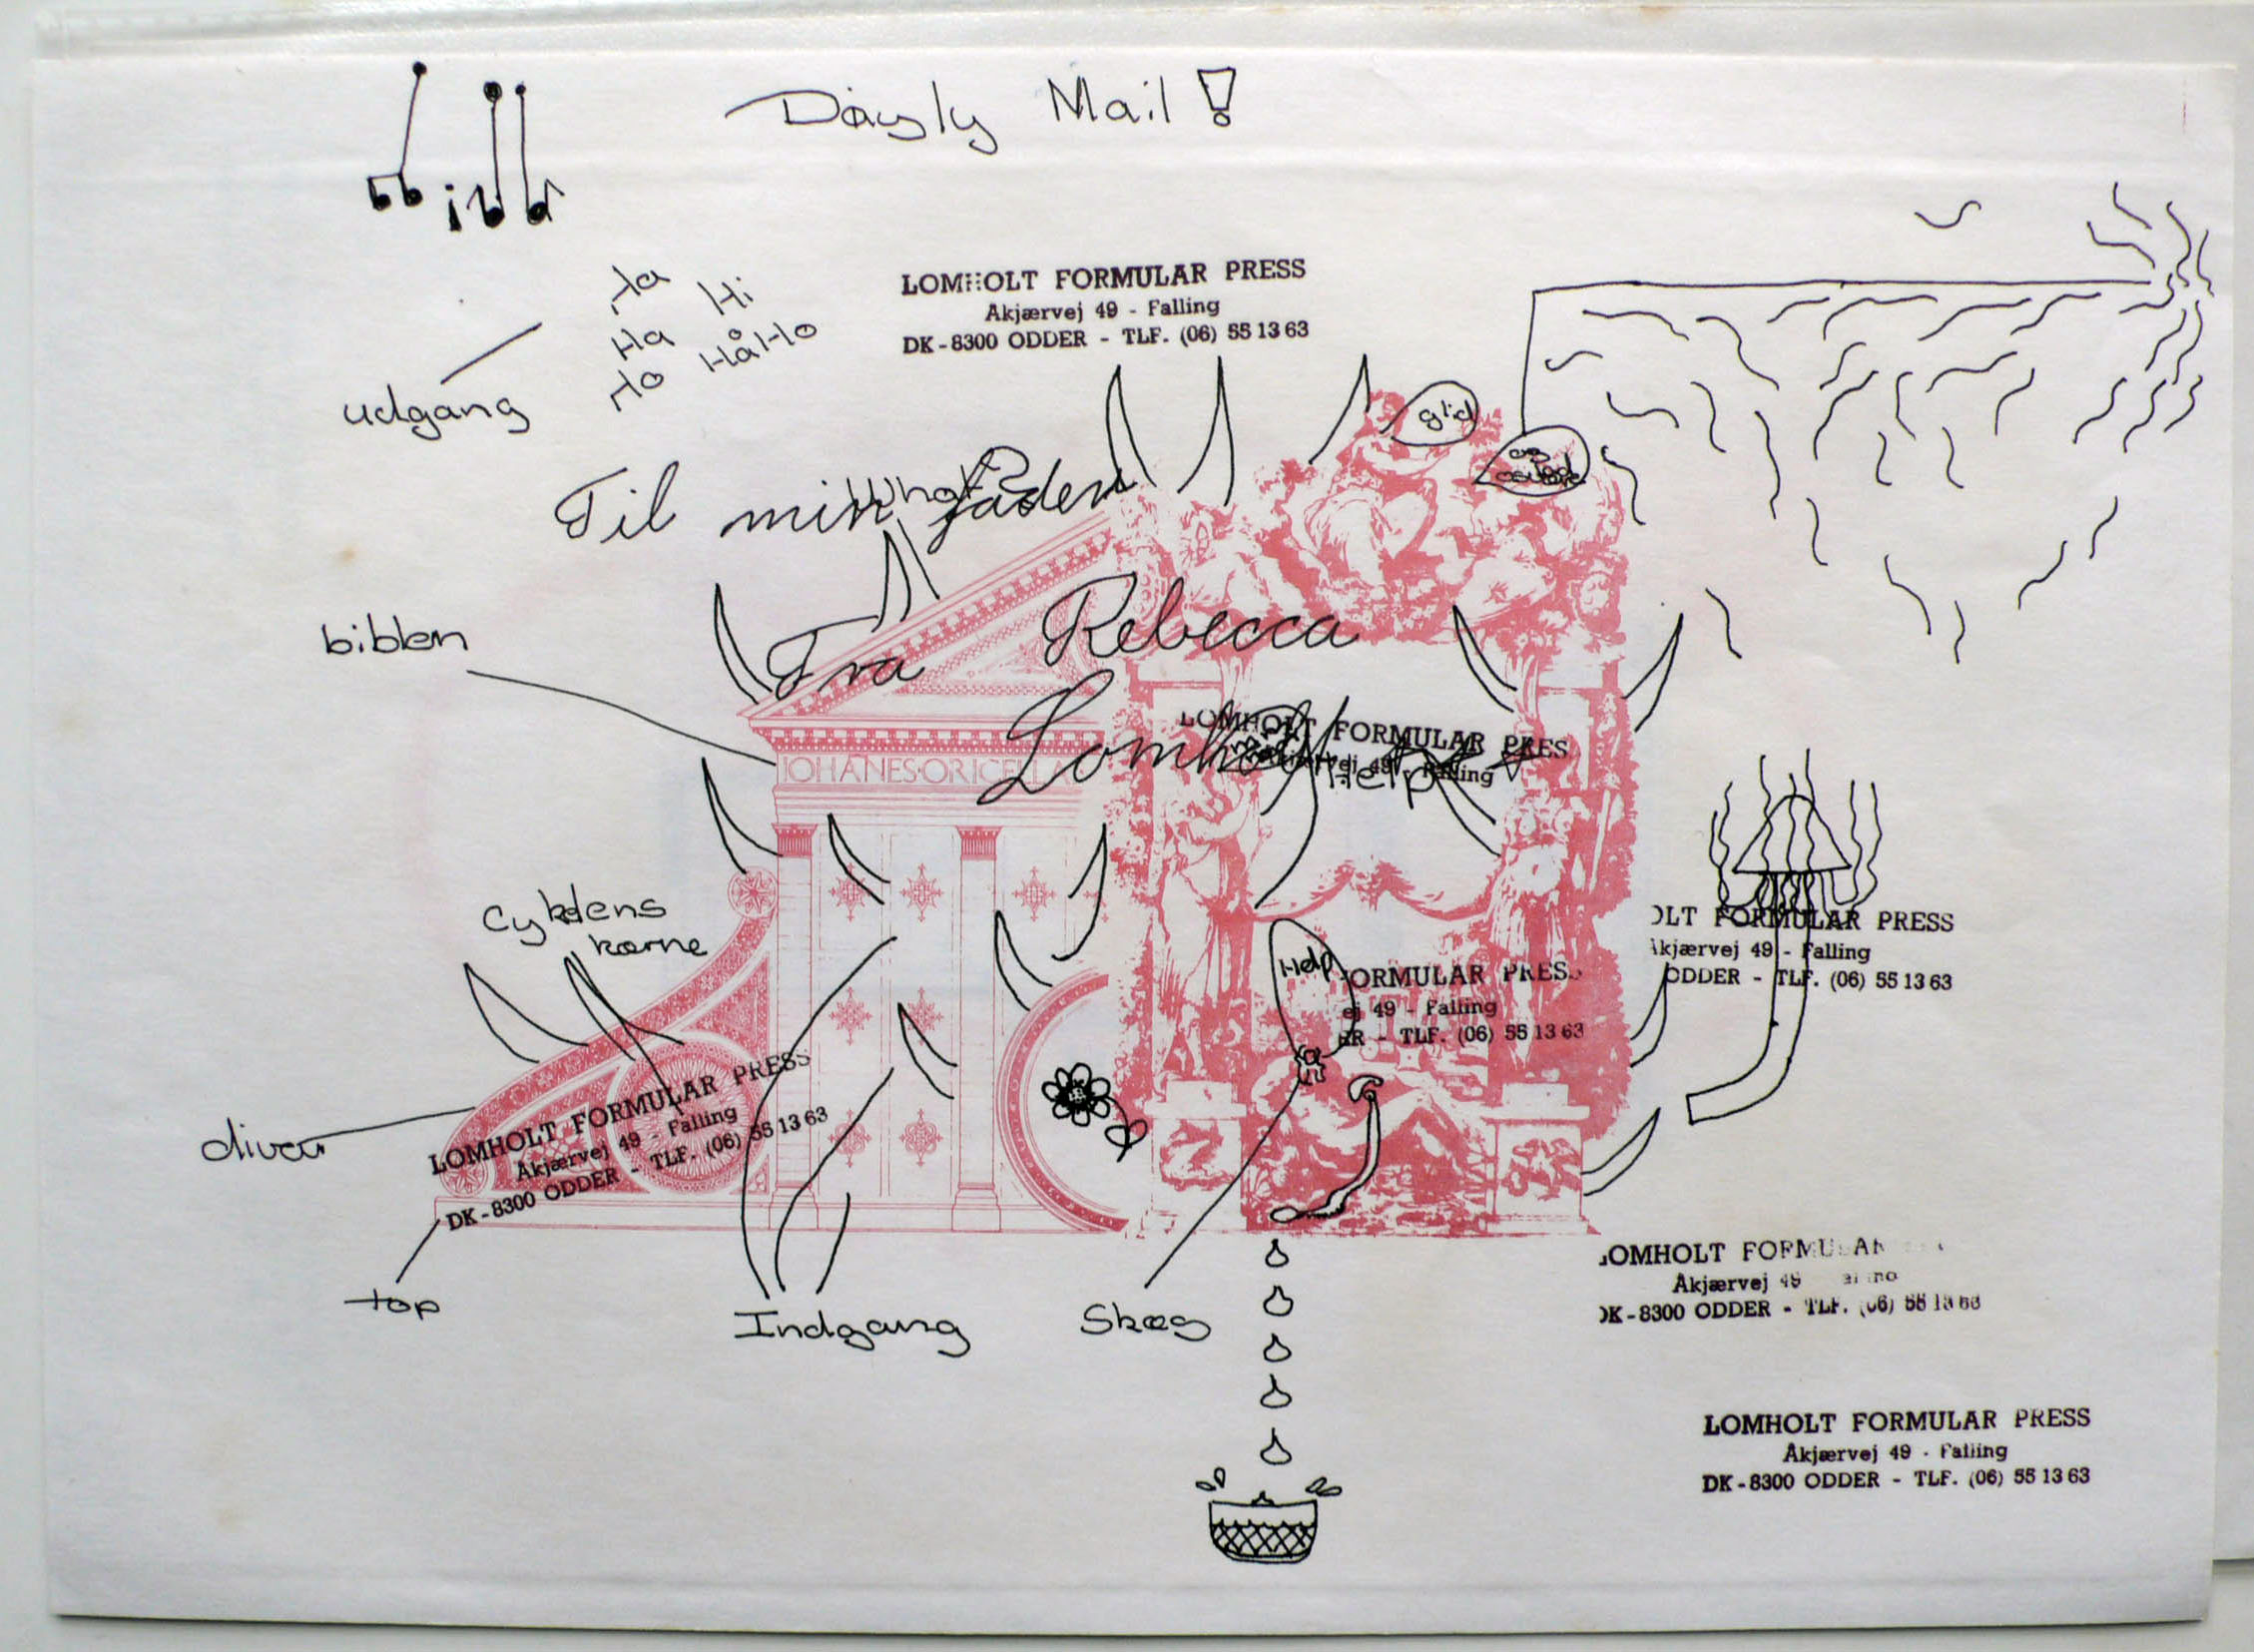 Dayly Mail!
Ha
Hi
Ha
Hå Ho
Ho
LOMHOLT FORMULAR PRESS
Akjærvej 49 - Falling
DK-8300 ODDER - TLF. (06) 55 13 63
udgang
glid
og
Til min fader
Fra Rebecca
Lomholt
biblen
IOHANES·ORICELLA
LOMHOLT FORMULAR PRES
ej 49 - Falling
Help
Cyklens
kærne
OLT FORMULAR PRESS
kjærvej 49 - Falling
ODDER - TLF. (06) 55 13 63
Help
FORMULAR PRESS
ej 49 - Falling
ER - TLF. (06) 55 13 63
LOMHOLT FORMULAR PRESS
Akjærvej 49 - Falling
DK-8300 ODDER - TLF. (06) 55 13 63
top
Indgang
Skæg
LOMHOLT FORMULAR
Akjærvej 49
DK-8300 ODDER - TLF. (06) 55 13 63
LOMHOLT FORMULAR PRESS
Akjærvej 49 - Falling
DK-8300 ODDER - TLF. (06) 55 13 63